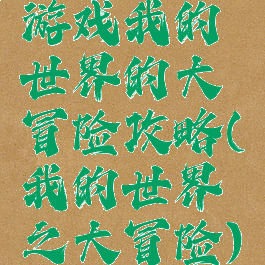 游戏我的
世界的大
冒险攻略(
我的世界
之大冒险)